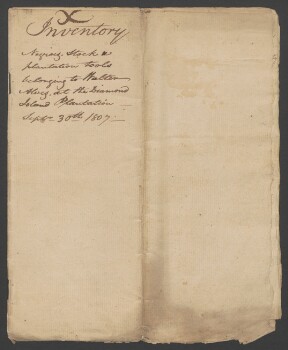 X
Inventory
Negroes, Stock &
plantation tools
belonging to Walter
Alves, at the Diamond
Island Plantation —
Septr 30th 1807 —